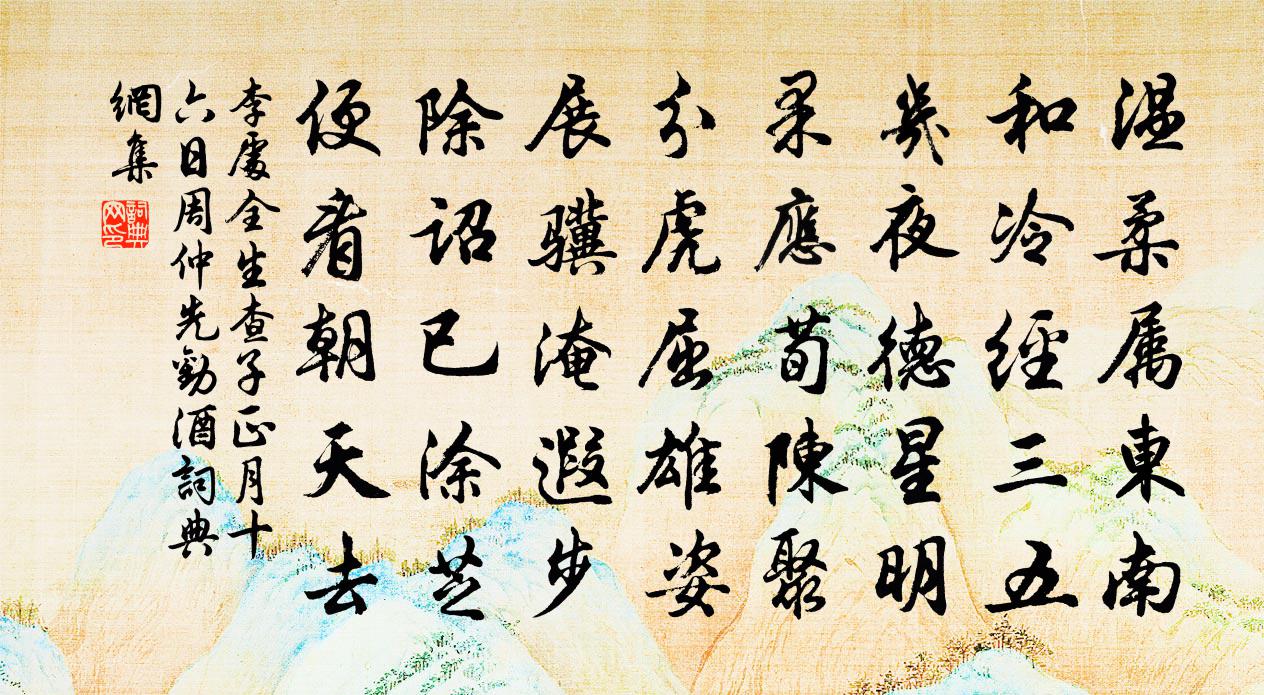 温柔属東南
和冷經三五
幾夜德星明
果應荀陳聚
分虎屈雄姿
展驥淹遐步
除詔已涂芝
便看朝天去
李處全生查子正月十
六日周仲先勸酒詞典
網集
詞典網印